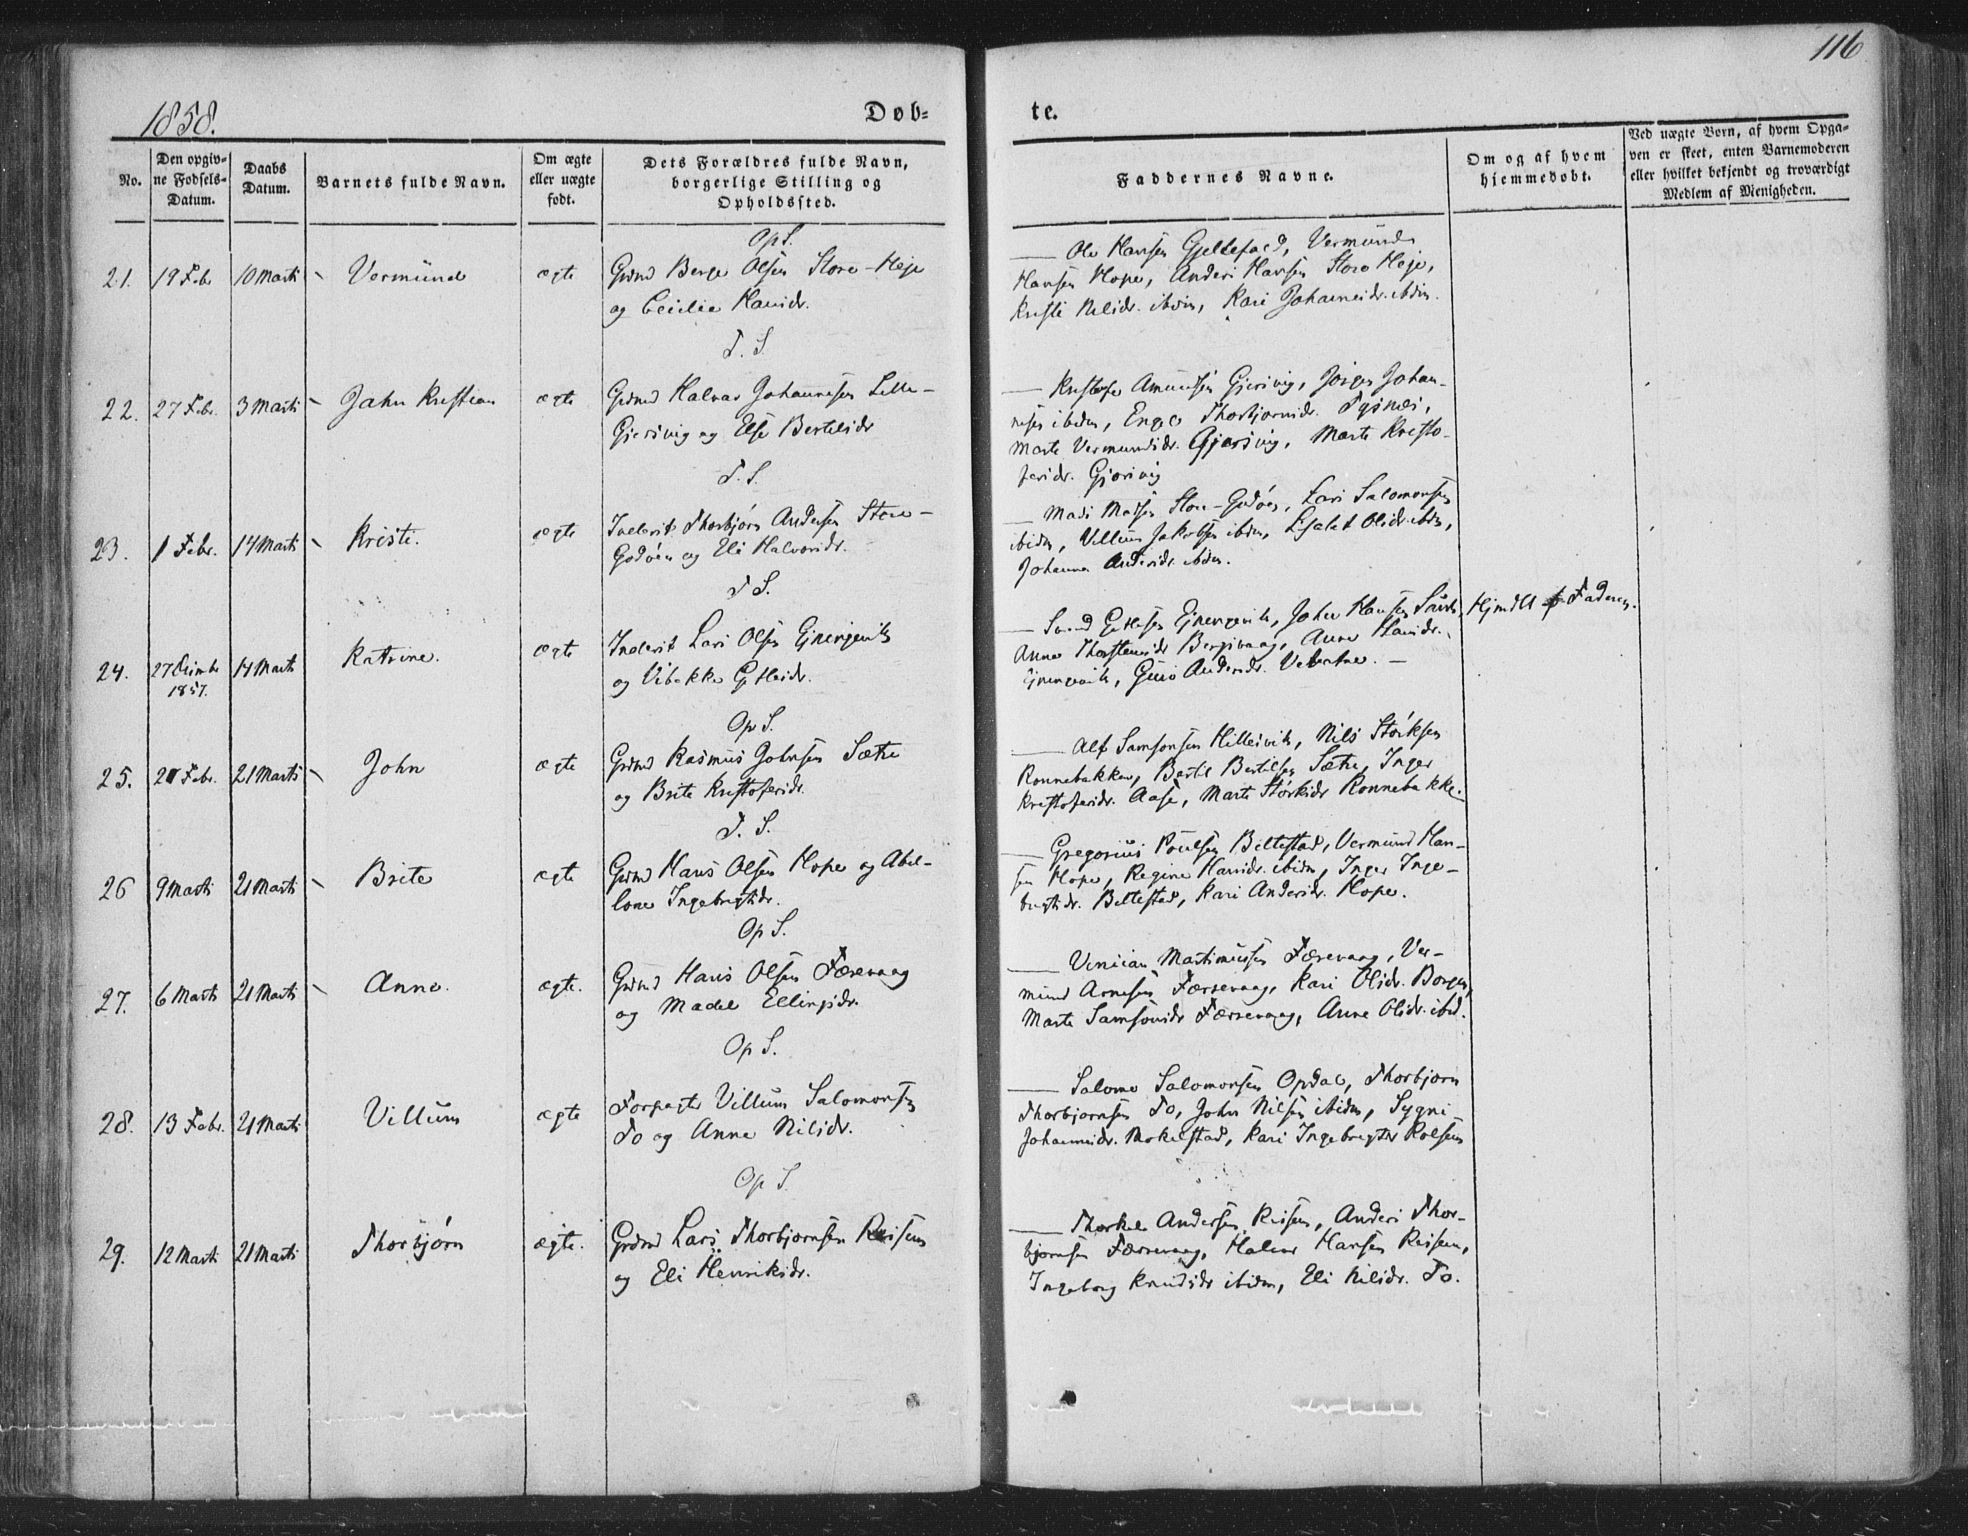 116
1858.
Døb=
te.
No.
Den opgiv-
ne Fødsels-
Datum.
Daabs
Datum.
Barnets fulde Navn.
Om ægte
eller uægte
født.
Dets Forældres fulde Navn,
borgerlige Stilling og
Opholdssted.
Faddernes Navne.
Om og af hvem
hjemmedøbt.
Ved uægte Børn, af hvem Opga-
ven er skeet, enten Barnemoderen
eller hvilket bekjendt og troværdigt
Medlem af Menigheden.
Op S.
21. 19 Febr 10 Marts Vermund ægte Grdmd Berge Olsen Store-Heje
og Cecilie Hansdr.
— Ole Hansen Gjeldefald, Vermund
Hansen Hope, Anders Hansen Store Heje,
Kristi Nilsdr. ibdm, Kari Johannesdr. ibdm.
T. S.
22. 27 Febr. 3 Marts Jahn Kristian ægte Grdmd Halvar Johannesen Lille-
Gjersvig og Else Bertelsdr
— Kristofer Amundsen Gjersvig, Jørgen Johan-
nesen ibdm, Engel Thorbjørnsdr. Tysnes,
Marte Vermundsdr. Gjersvig, Marte Kristo-
fersdr. Gjersvig
T. S.
23. 1 Febr. 14 Marts Kriste. ægte Inderst Thorbjørn Andersen Store-
Godøen og Eli Halvorsdr.
— Mads Madsen Store-Godøen, Lars Salomonsen
ibidm, Villum Jakobsen ibdm, Olsdr. ibdm,
Johanna Andersdr. ibdm.
T S.
24. 27 Decembr 14 Marts Katrine. ægte Inderst Lars Olsen
1857.
og Vibekke Gitlesdr.
— Svend Gitlesen John Hansen Hjmdbt af Faderen.
Anna Thorstensdr Anna
Guro Andersdr. —
Op S.
25. 20 Febr. 21 Marts John ægte Grdmd Rasmus Johnsen Sæthe
og Brite Kristofersdr.
— Alf Samsonsen Hillesvik, Nils Størksen
Rønnebakken, Bertil Bertilsen Sæthe, Inger
Kristofersdr. Aase, Marte Størksdr Rønnebakke.
T. S.
26 9 Marts 21 Marts Brite ægte Grdmd Hans Olsen Hope og Abel-
lone Ingebrigtsdr.
— Gregorius Poulsen Beltestad, Vermund Han-
sen Hope, Regine Hansdr. ibidm, Inger Inge-
brigtsdr. Beltestad, Kari Andersdr. Hope.
Op S.
27. 6 Marts 21 Marts Anna. ægte. Grdmd Hans Olsen Færevaag
og Madel Ellingsdr.
— Martinussen Færevaag, Ver-
mund Arnesen Færevaag, Kari Olsdr. Borgen,
Marte Samsonsdr Færevaag, Anna Olsdr. ibid.
Op S.
28. 13 Febr. 21 Marts Villum ægte Forpagter Villum Salomonsen
To og Anna Nilsdr.
— Salomo Salomonsen Opdal, Thorbjørn
Thorbjørnsen To, John Nilsen ibidm, Sygni-
Johannesdr. Mokelstad, Kari Ingebrigtsdr
Op S.
29. 12 Marts 21 Marts Thorbjørn ægte. Grdmd Lars Thorbjørnsen Reisen
og Eli Henriksdr.
— Thorkel Andersen Reisen, Anders Thor-
bjørnsen Færevaag, Halvor Hansen Reisen,
Ingeborg Knudsdr ibidm, Eli Nilsdr. To.